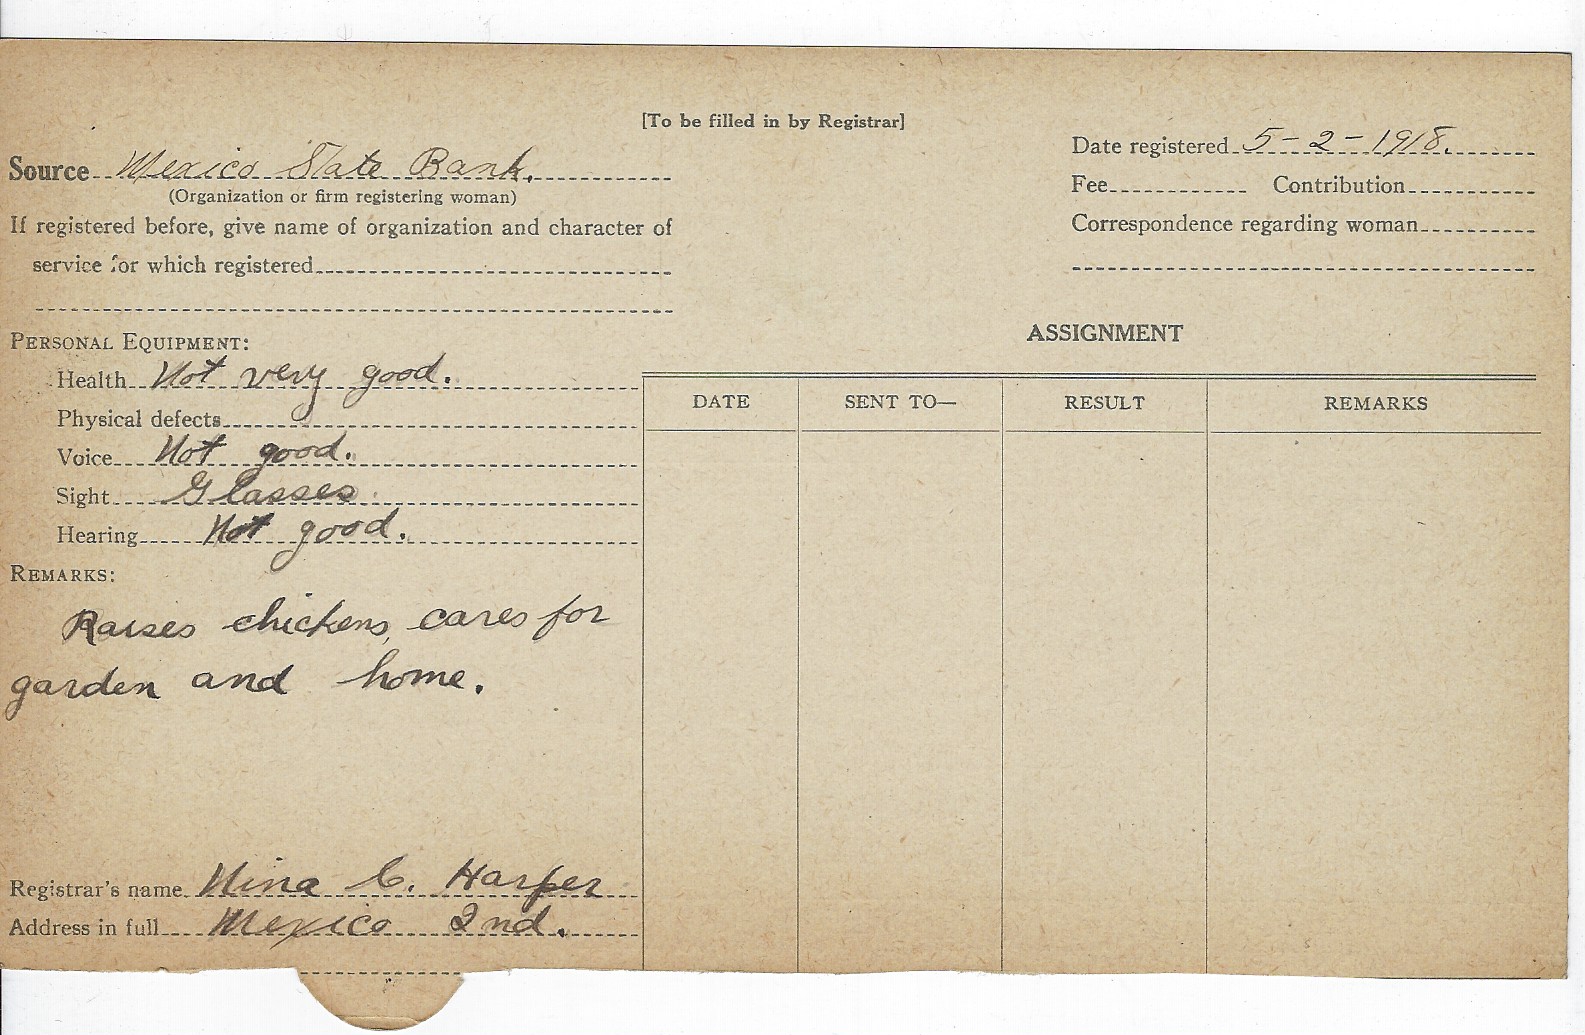 [To be filled in by Registrar]
Source Mexico State Bank.
(Organization or firm registering woman)
If registered before, give name of organization and character of
service for which registered
Date registered 5-2-1918.
Fee Contribution
Correspondence regarding woman
PERSONAL EQUIPMENT:
Health Not very good.
Physical defects
Voice Not good.
Sight Glasses
Hearing Not good.
REMARKS:
Raises chickens, cares for
garden and home.
Registrar's name Nina C. Harper
Address in full Mexico Ind.
ASSIGNMENT
DATE SENT TO— RESULT REMARKS